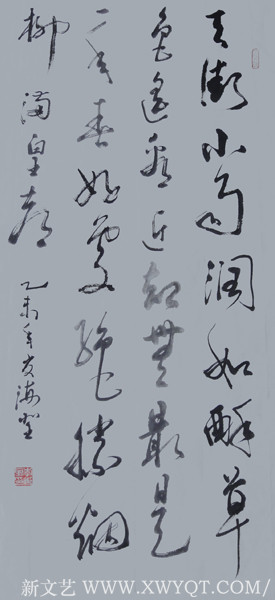 天街小雨润如酥草
色遥看近却無最是
一年春好處绝胜烟
柳满皇都
乙未年 海
新文艺 / WWW.XWYQT.COM/